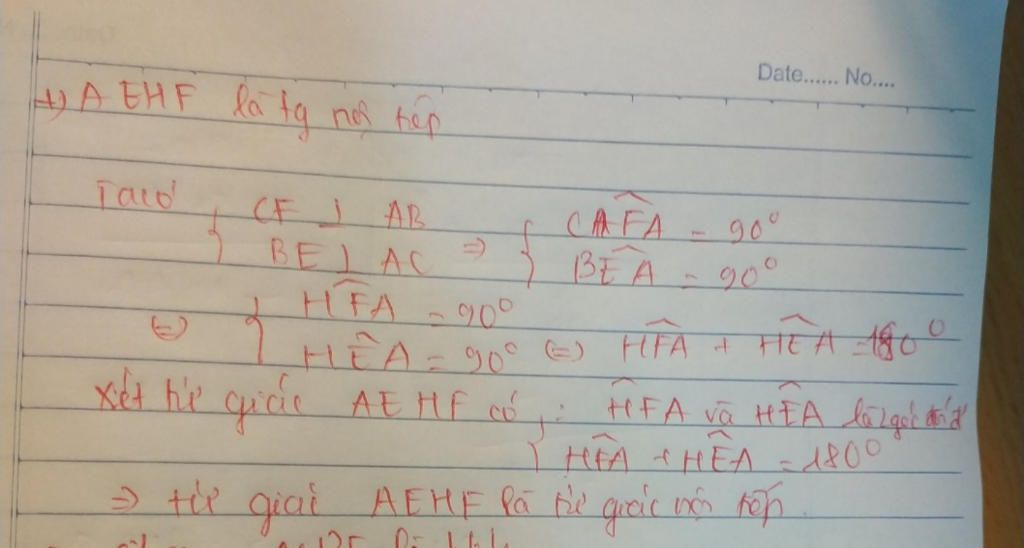 Date...... No....
+) AEHF là tg nội tiếp
Ta có { CF ⊥ AB
BE ⊥ AC ⇒ { CFA = 90°
BEA = 90°
⇔ { HFA = 90°
HEA = 90° ⇔ HFA + HEA = 180°
Xét tứ giác AEHF có { : HFA và HEA là 2 góc đối
HFA + HEA = 180°
⇒ tứ giác AEHF là tứ giác nội tiếp.